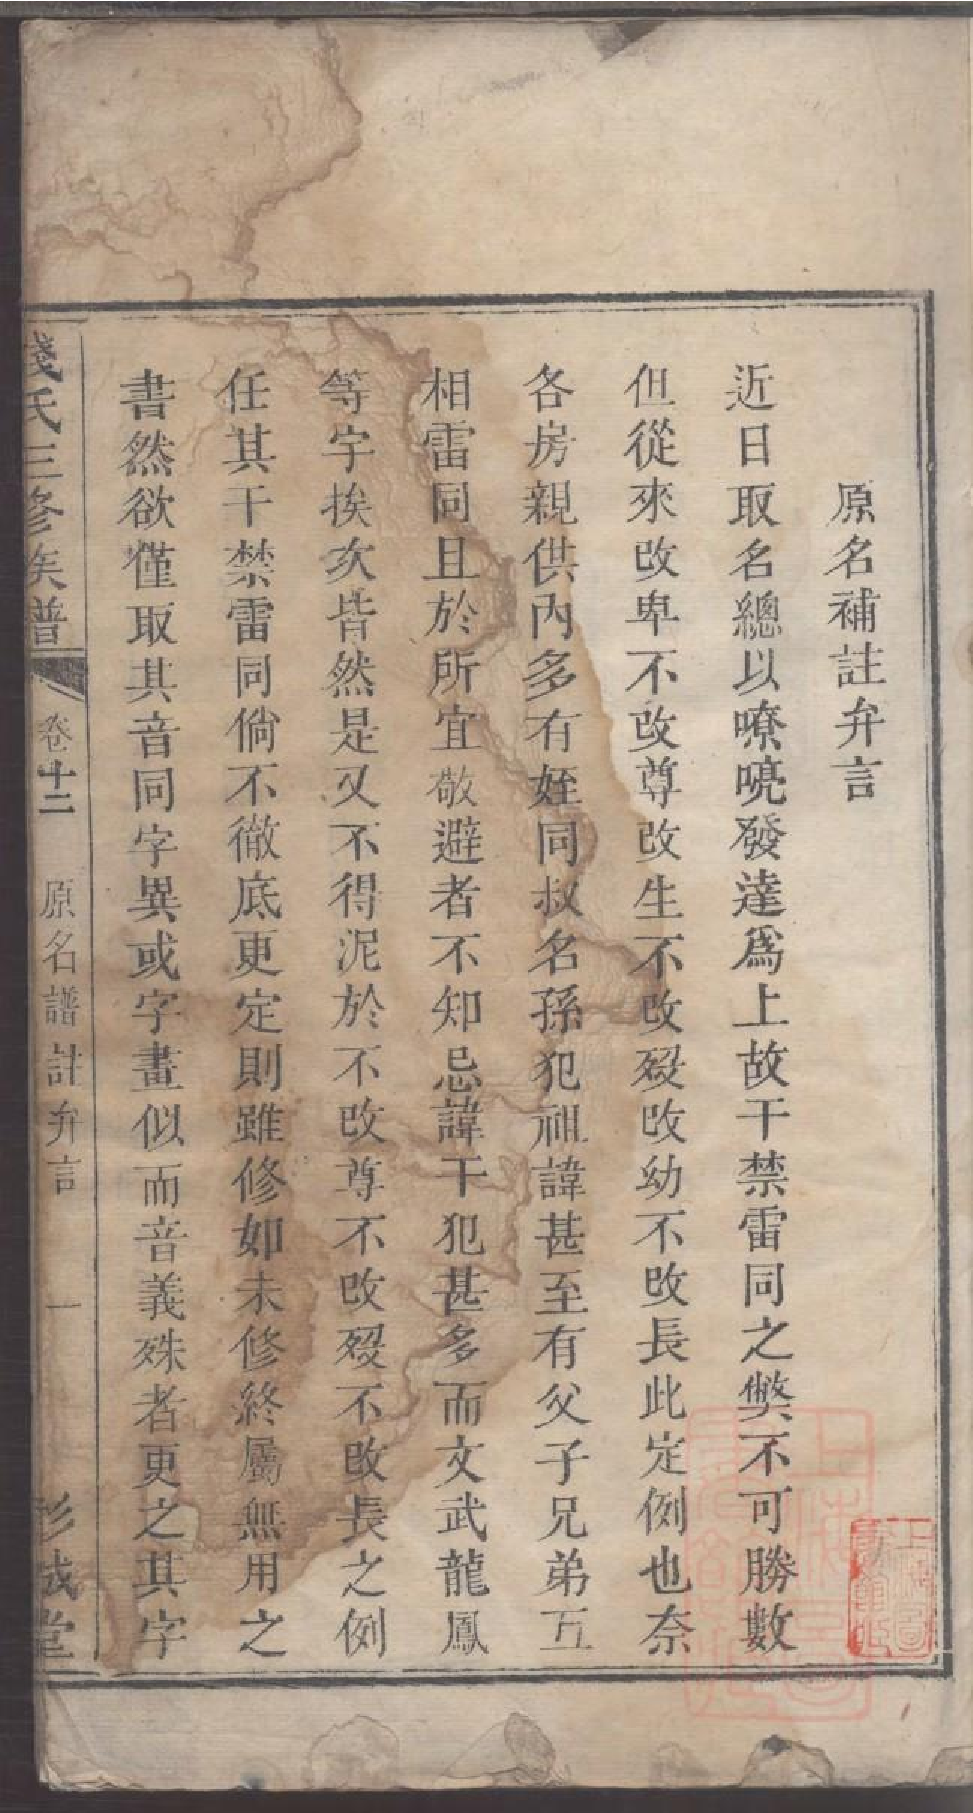 原名補註弁言
近日取名總以嘹喨發達爲上故干禁雷同之獘不可勝數
但從來改卑不改尊改生不改歿改幼不改長此定例也奈
各房親供內多有姪同叔名孫犯祖諱甚至有父子兄弟互
相雷同且於所宜敬避者不知忌諱干犯甚多而文武龍鳳
等字挨次皆然是又不得泥於不改尊不改歿不改長之例
任其干禁雷同倘不徹底更定則雖修如未修終屬無用之
書然欲僅取其音同字異或字畫似而音義殊者更之其字
錢氏三修族譜 卷十二 原名譜計弁言 一 彭城堂